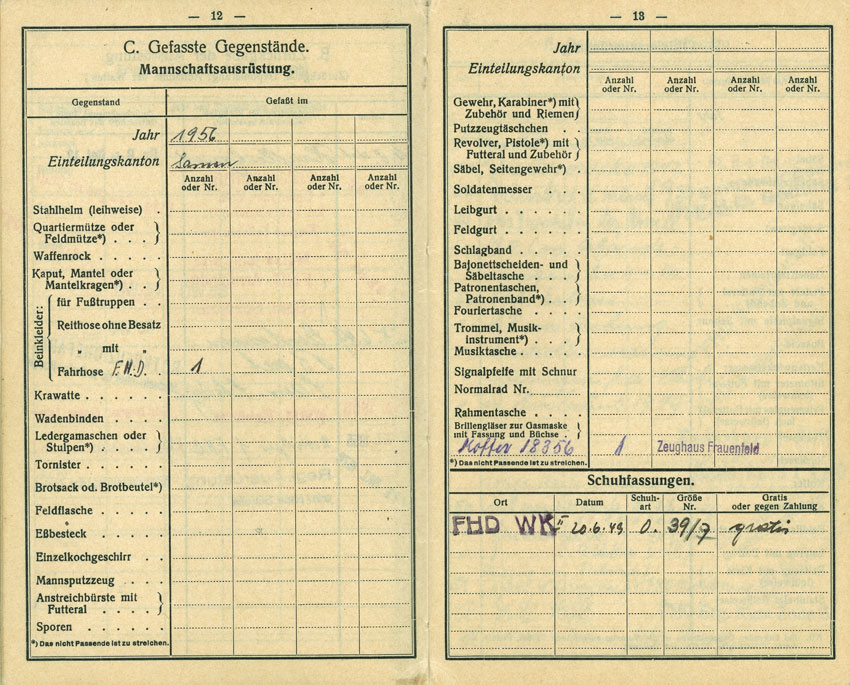 — 12 —
C. Gefasste Gegenstände.
Mannschaftsausrüstung.
Gegenstand Gefaßt im
Jahr 1956
Einteilungskanton
Anzahl oder Nr. Anzahl oder Nr. Anzahl oder Nr. Anzahl oder Nr.
Stahlhelm (leihweise) .
Quartiermütze oder
Feldmütze*) . . .
Waffenrock . . . . .
Kaput, Mantel oder
Mantelkragen*) . .
Beinkleider:
für Fußtruppen . .
Reithose ohne Besatz
„ mit „
Fahrhose F.H.D. 1
Krawatte . . . . . .
Wadenbinden . . . .
Ledergamaschen oder
Stulpen*) . . . .
Tornister . . . . . .
Brotsack od. Brotbeutel*)
Feldflasche . . . . .
Eßbesteck . . . . .
Einzelkochgeschirr . .
Mannsputzzeug . . .
Anstreichbürste mit
Futteral . . . . .
Sporen . . . . . .
*) Das nicht Passende ist zu streichen.
— 13 —
Jahr
Einteilungskanton
Anzahl oder Nr. Anzahl oder Nr. Anzahl oder Nr. Anzahl oder Nr.
Gewehr, Karabiner*) mit
Zubehör und Riemen
Putzzeugtäschchen . .
Revolver, Pistole*) mit
Futteral und Zubehör
Säbel, Seitengewehr*) .
Soldatenmesser . . .
Leibgurt . . . . . .
Feldgurt . . . . . .
Schlagband . . . . .
Bajonettscheiden- und
Säbeltasche . . . .
Patronentaschen,
Patronenband*) . . .
Fouriertasche . . . .
Trommel, Musik-
instrument*) . . . .
Musiktasche . . . . .
Signalpfeife mit Schnur
Normalrad Nr.
Rahmentasche . . . .
Brillengläser zur Gasmaske
mit Fassung und Büchse .
Koffer 18356 1 Zeughaus Frauenfeld
*) Das nicht Passende ist zu streichen.
Schuhfassungen.
Ort Datum Schuh- art Größe Nr. Gratis oder gegen Zahlung
FHD WK II 20.6.49 O. 39/7 gratis